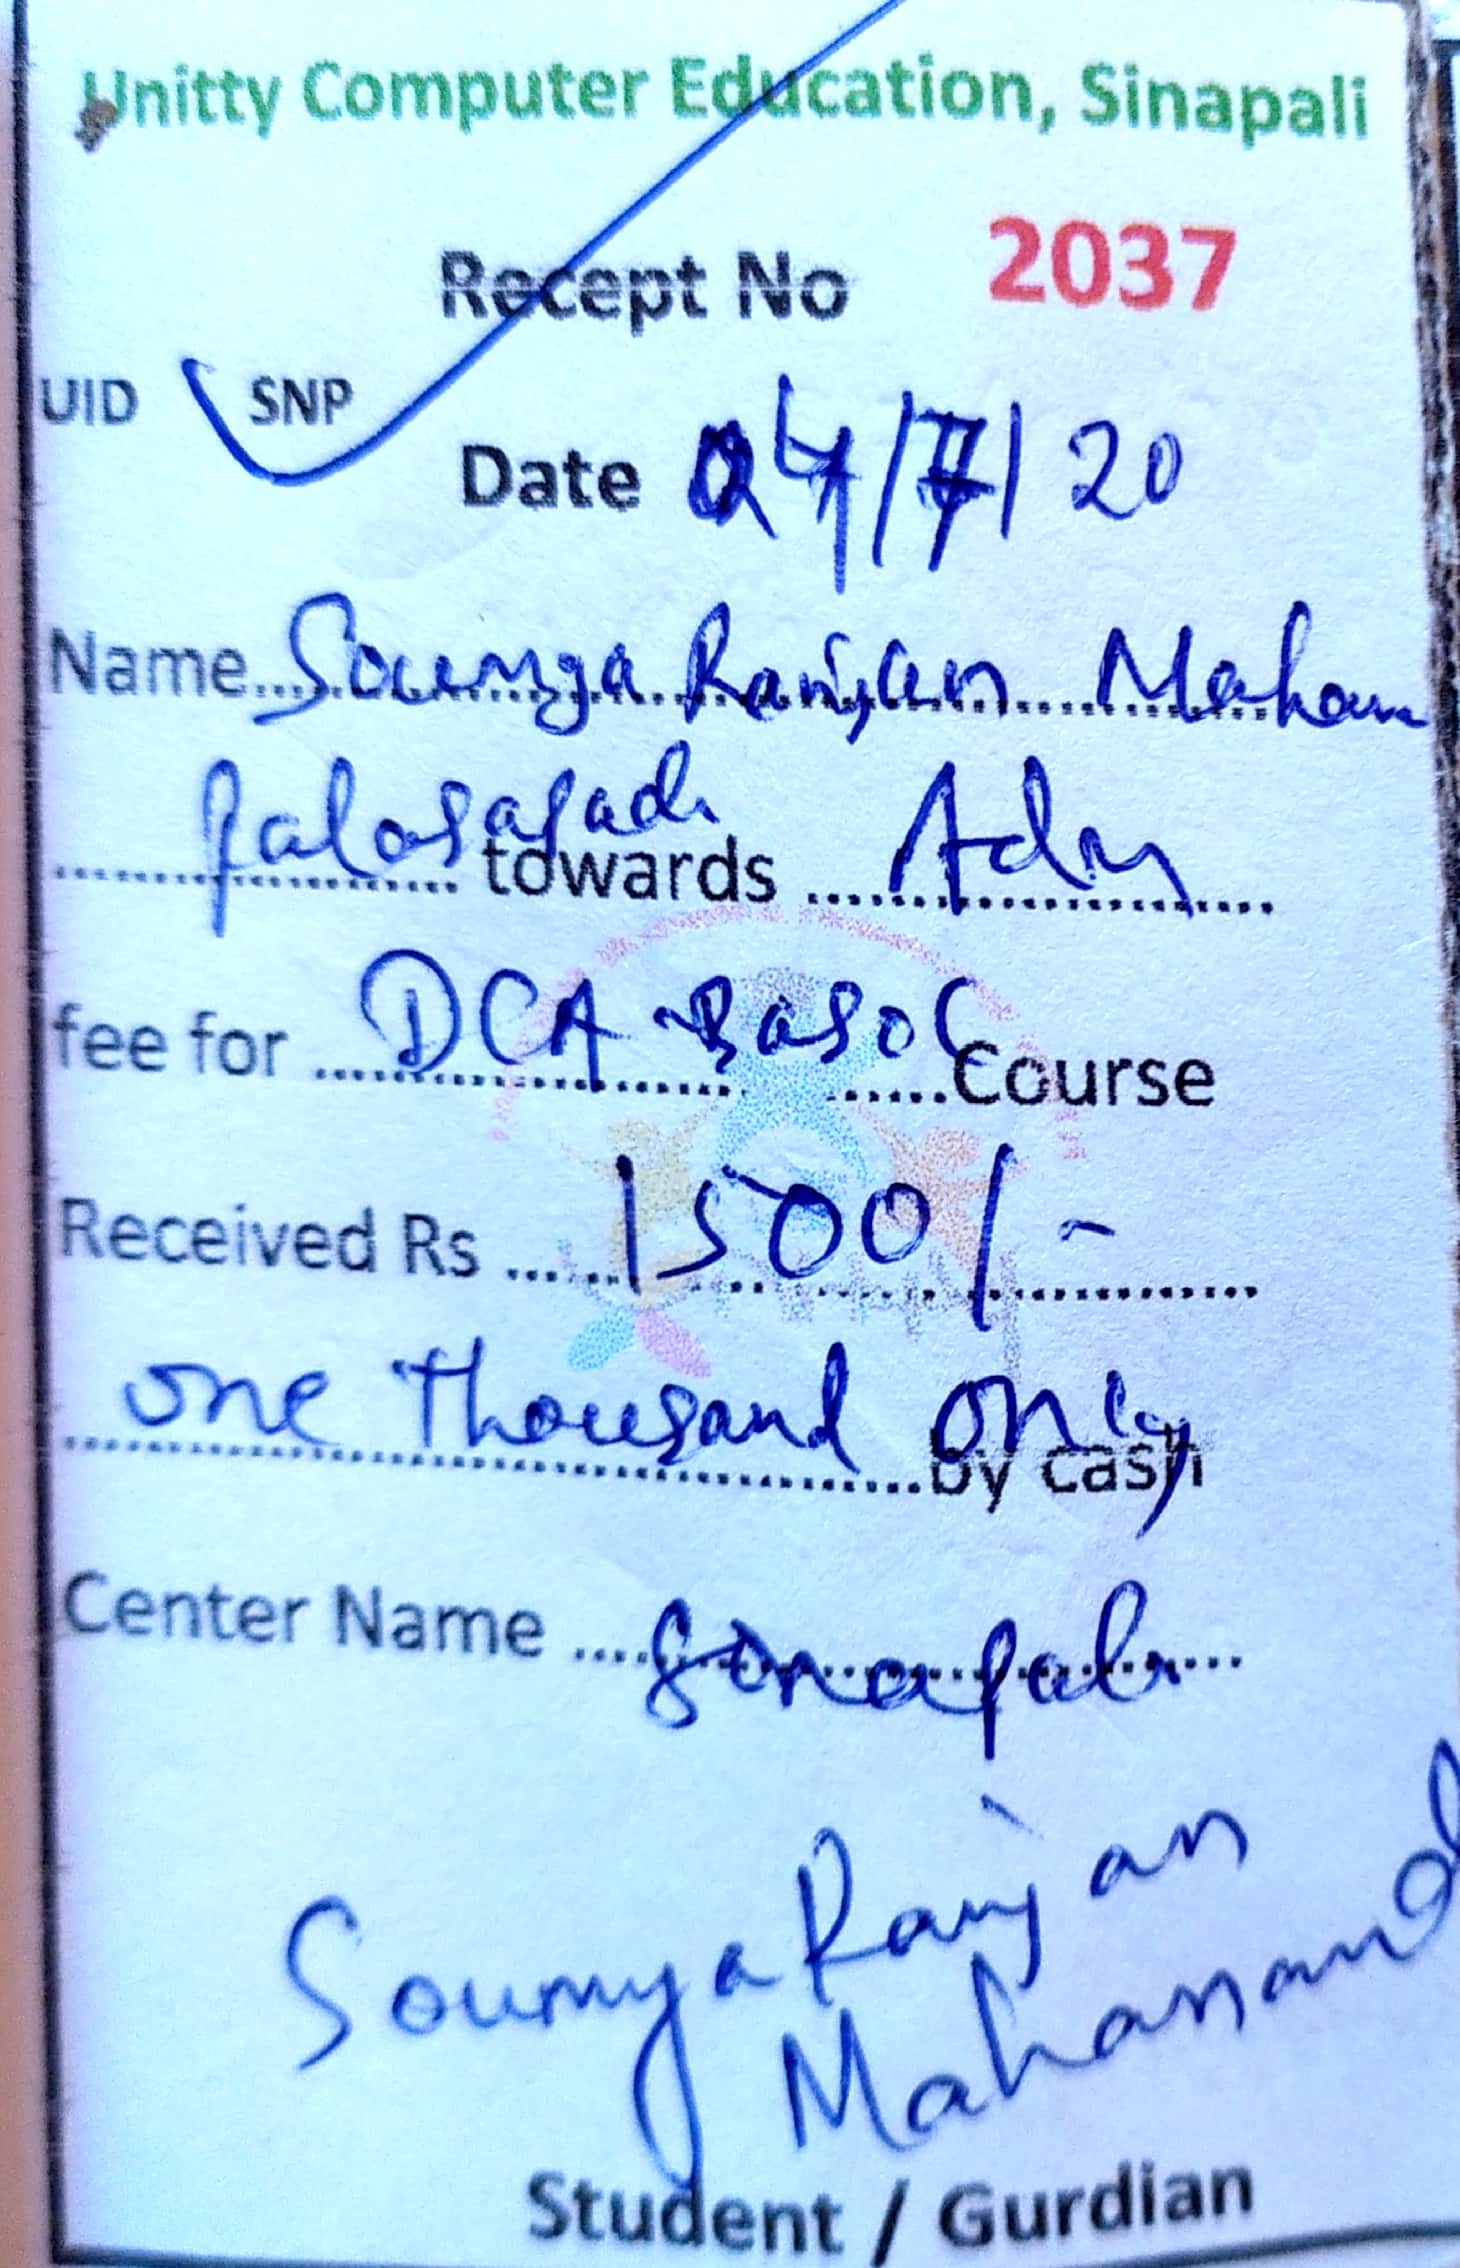 Unitty Computer Education, Sinapali
Recept No 2037
UID SNP
Date 04/7/20
Name Soumya Ranjan Mahan
towards Adm
fee for DCA Course
Received Rs 1500/-
one thousand only by cash
Center Name Sinapali
Soumya Ranjan
Mahanand
Student / Gurdian